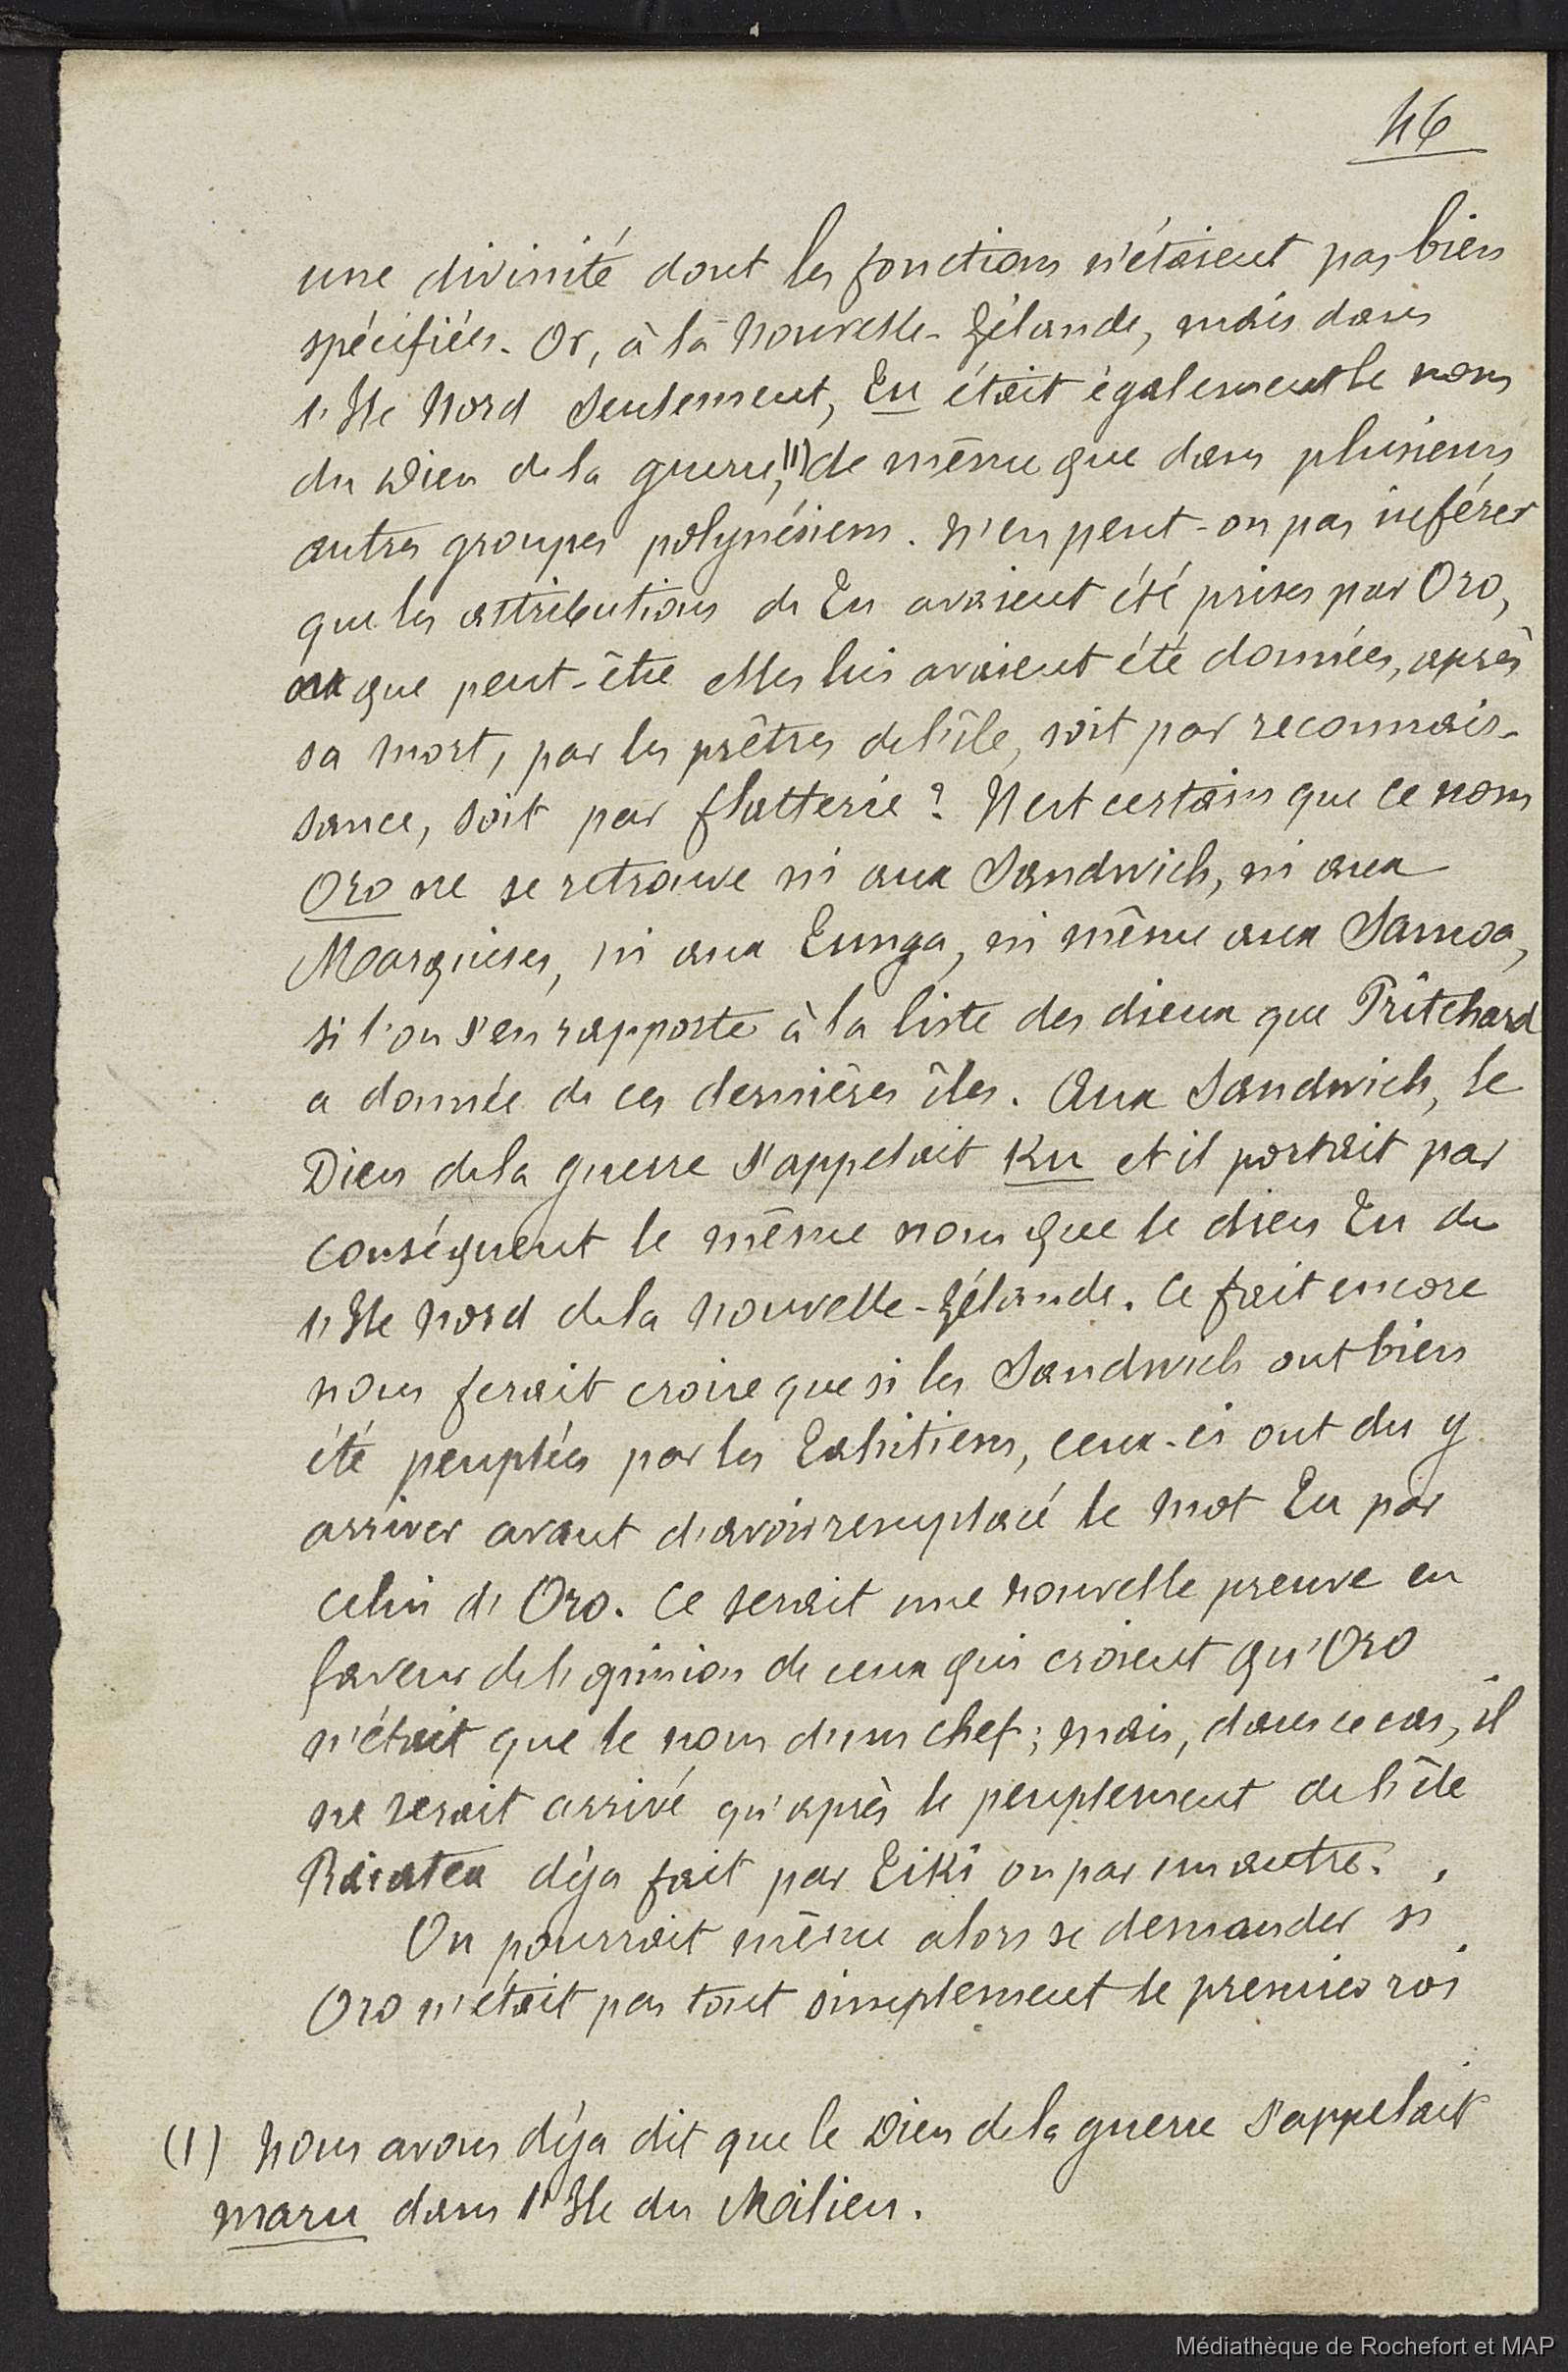 46
une divinité dont les fonctions n'étaient pas bien
spécifiées. Or, à la Nouvelle-Zélande, mais dans
l'Ile Nord seulement, Tu était également le nom
du Dieu de la guerre,(1) de même que dans plusieurs
autres groupes polynésiens. N'en peut-on pas inférer
que les attributions de Tu avaient été prises par Oro,
ou que peut-être elles lui avaient été données, après
sa mort, par les prêtres de l'île, soit par reconnais-
sance, soit par flatterie? Il est certain que ce nom
Oro ne se retrouve ni aux Sandwich, ni aux
Marquises, ni aux Tunga, ni même aux Samoa,
si l'on s'en rapporte à la liste des dieux que Pritchard
a donnée de ces dernières îles. Aux Sandwich, le
Dieu de la guerre s'appelait Ku et il portait par
conséquent le même nom que le dieu Tu de
l'Ile Nord de la Nouvelle-Zélande. Ce fait encore
nous ferait croire que si les Sandwich ont bien
été peuplées par les Tahitiens, ceux-ci ont du y
arriver avant d'avoir remplacé le mot Tu par
celui d'Oro. Ce serait une nouvelle preuve en
faveur de l'opinion de ceux qui croient qu'Oro
n'était que le nom d'un chef; mais, dans ce cas, il
ne serait arrivé qu'après le peuplement de l'île
Raiatea déja fait par Tiki ou par un autre.
On pourrait même alors se demander si
Oro n'était pas tout simplement le premier roi
(1) Nous avons déja dit que le Dieu de la guerre s'appelait
maru dans l'Ile du Milieu.
Médiathèque de Rochefort et MAP